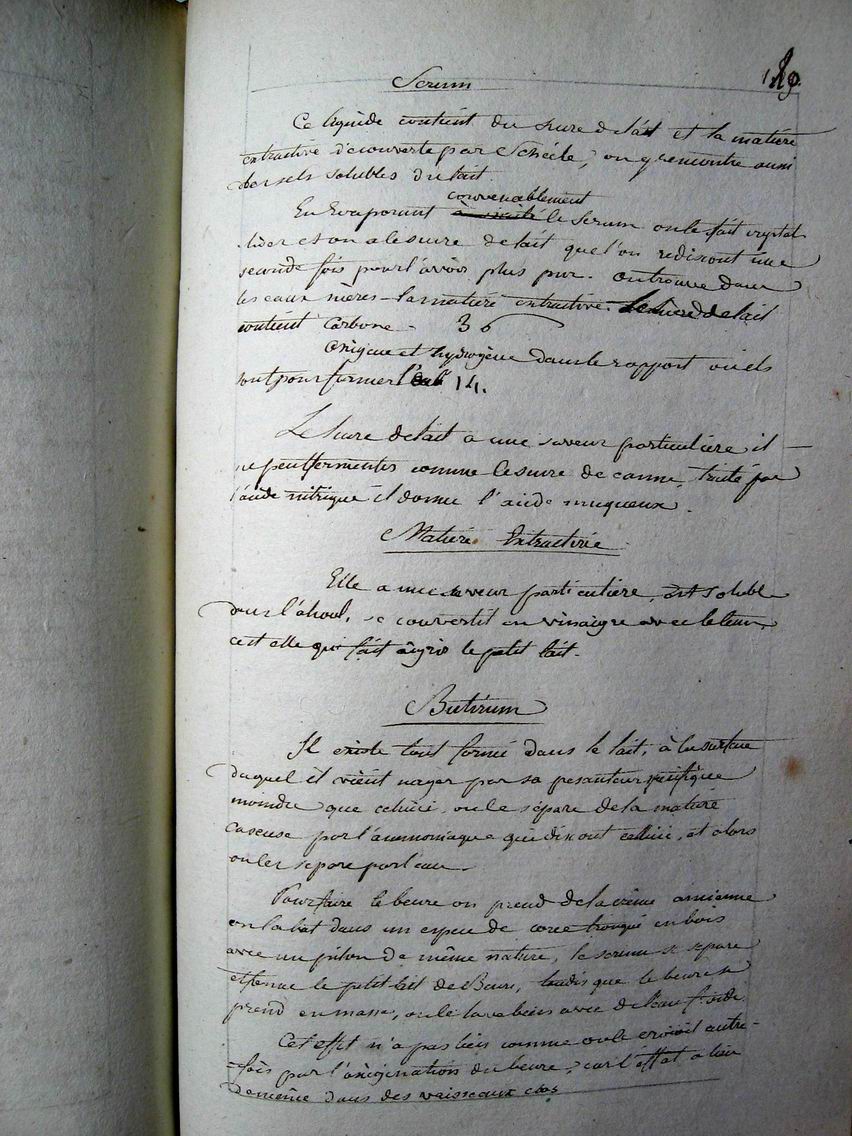 Serum
Ce liquide contient du sucre de lait et la matière
extractive découverte par Schéele, on y rencontre aussi
des sels solubles du lait.
convenablement
En Evaporant à siccité le Serum on le fait crystal
-liser et on a le sucre de lait que l'on redissout une
seconde fois pour l'avoir plus pur. on trouve dans
les eaux mères la matière extractive. Le sucre de lait
contient Carbone - 36
Oxigene et hydrogène dans le rapport où ils
sont pour former l'eau 14.
Le sucre de lait a une saveur particulière, il
ne peut fermenter comme le sucre de canne, traité par
l'acide nitrique il donne l'acide muqueux.
Matière Extractive
Elle a une saveur particulière, est soluble
dans l'alcool, se convertit en vinaigre avec le tems,
c'est elle qui fait aigrir le petit lait.
Butirum
Il existe tout formé dans le lait, à la surface
duquel il vient nager par sa pesanteur spécifique
moindre que celui ci, on le sépare de la matière
caseuse par l'ammoniaque qui dissout celle ci, et alors
on les separe par l'eau.
Pour faire le beure on prend de la crème
on la bat dans un espece de cone tronqué en bois
avec un piston de même nature, le serum se separe
et forme le petit lait de Beure, tandis que le beure se
prend en masse, on le lave bien avec de l'eau froide.
Cet effet n'a pas lieu comme on le croioit autre-
-fois par l'oxigénation du beure, car l'effet a lieu
de même dans des vaisseaux clos